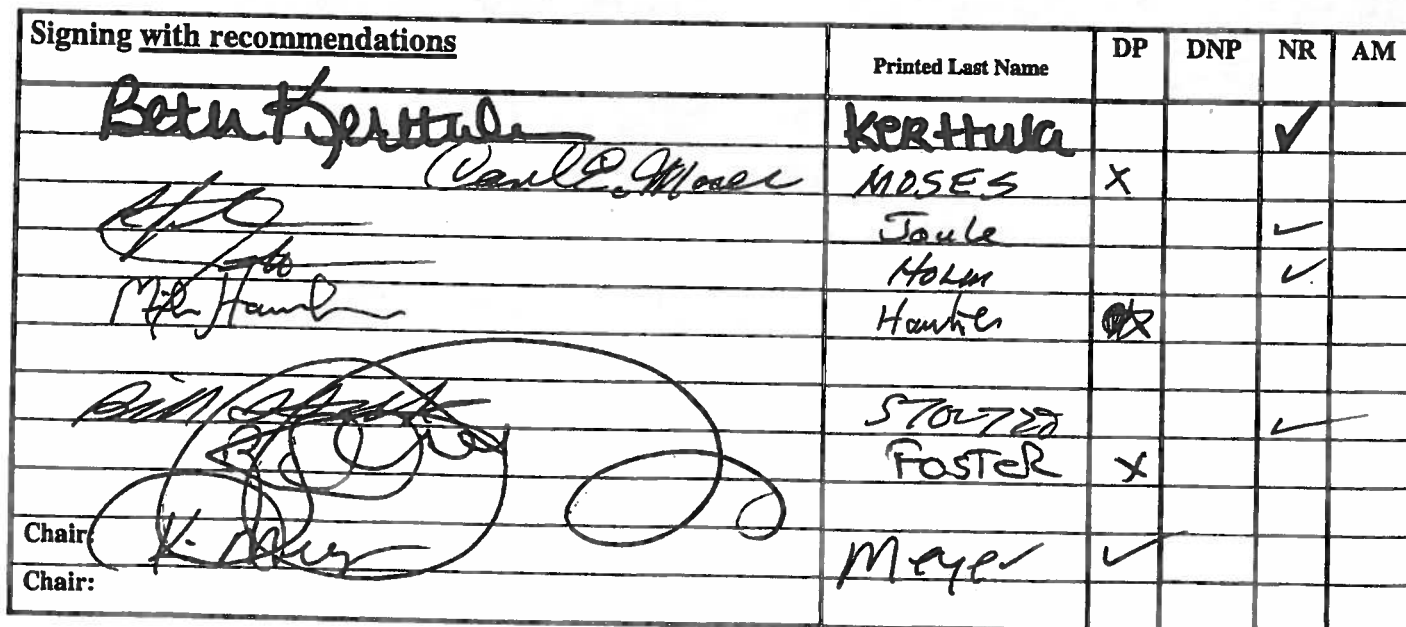 Signing with recommendations Printed Last Name DP DNP NR AM
Beth Kerttula KERTTULA ✓
Carl E. Moses MOSES X
Joule ✓
Holm ✓
Mike Hawker Hawker X
Bill Stoltze STOLTZE ✓
FOSTER X
Chair: K. Meyer Meyer ✓
Chair: